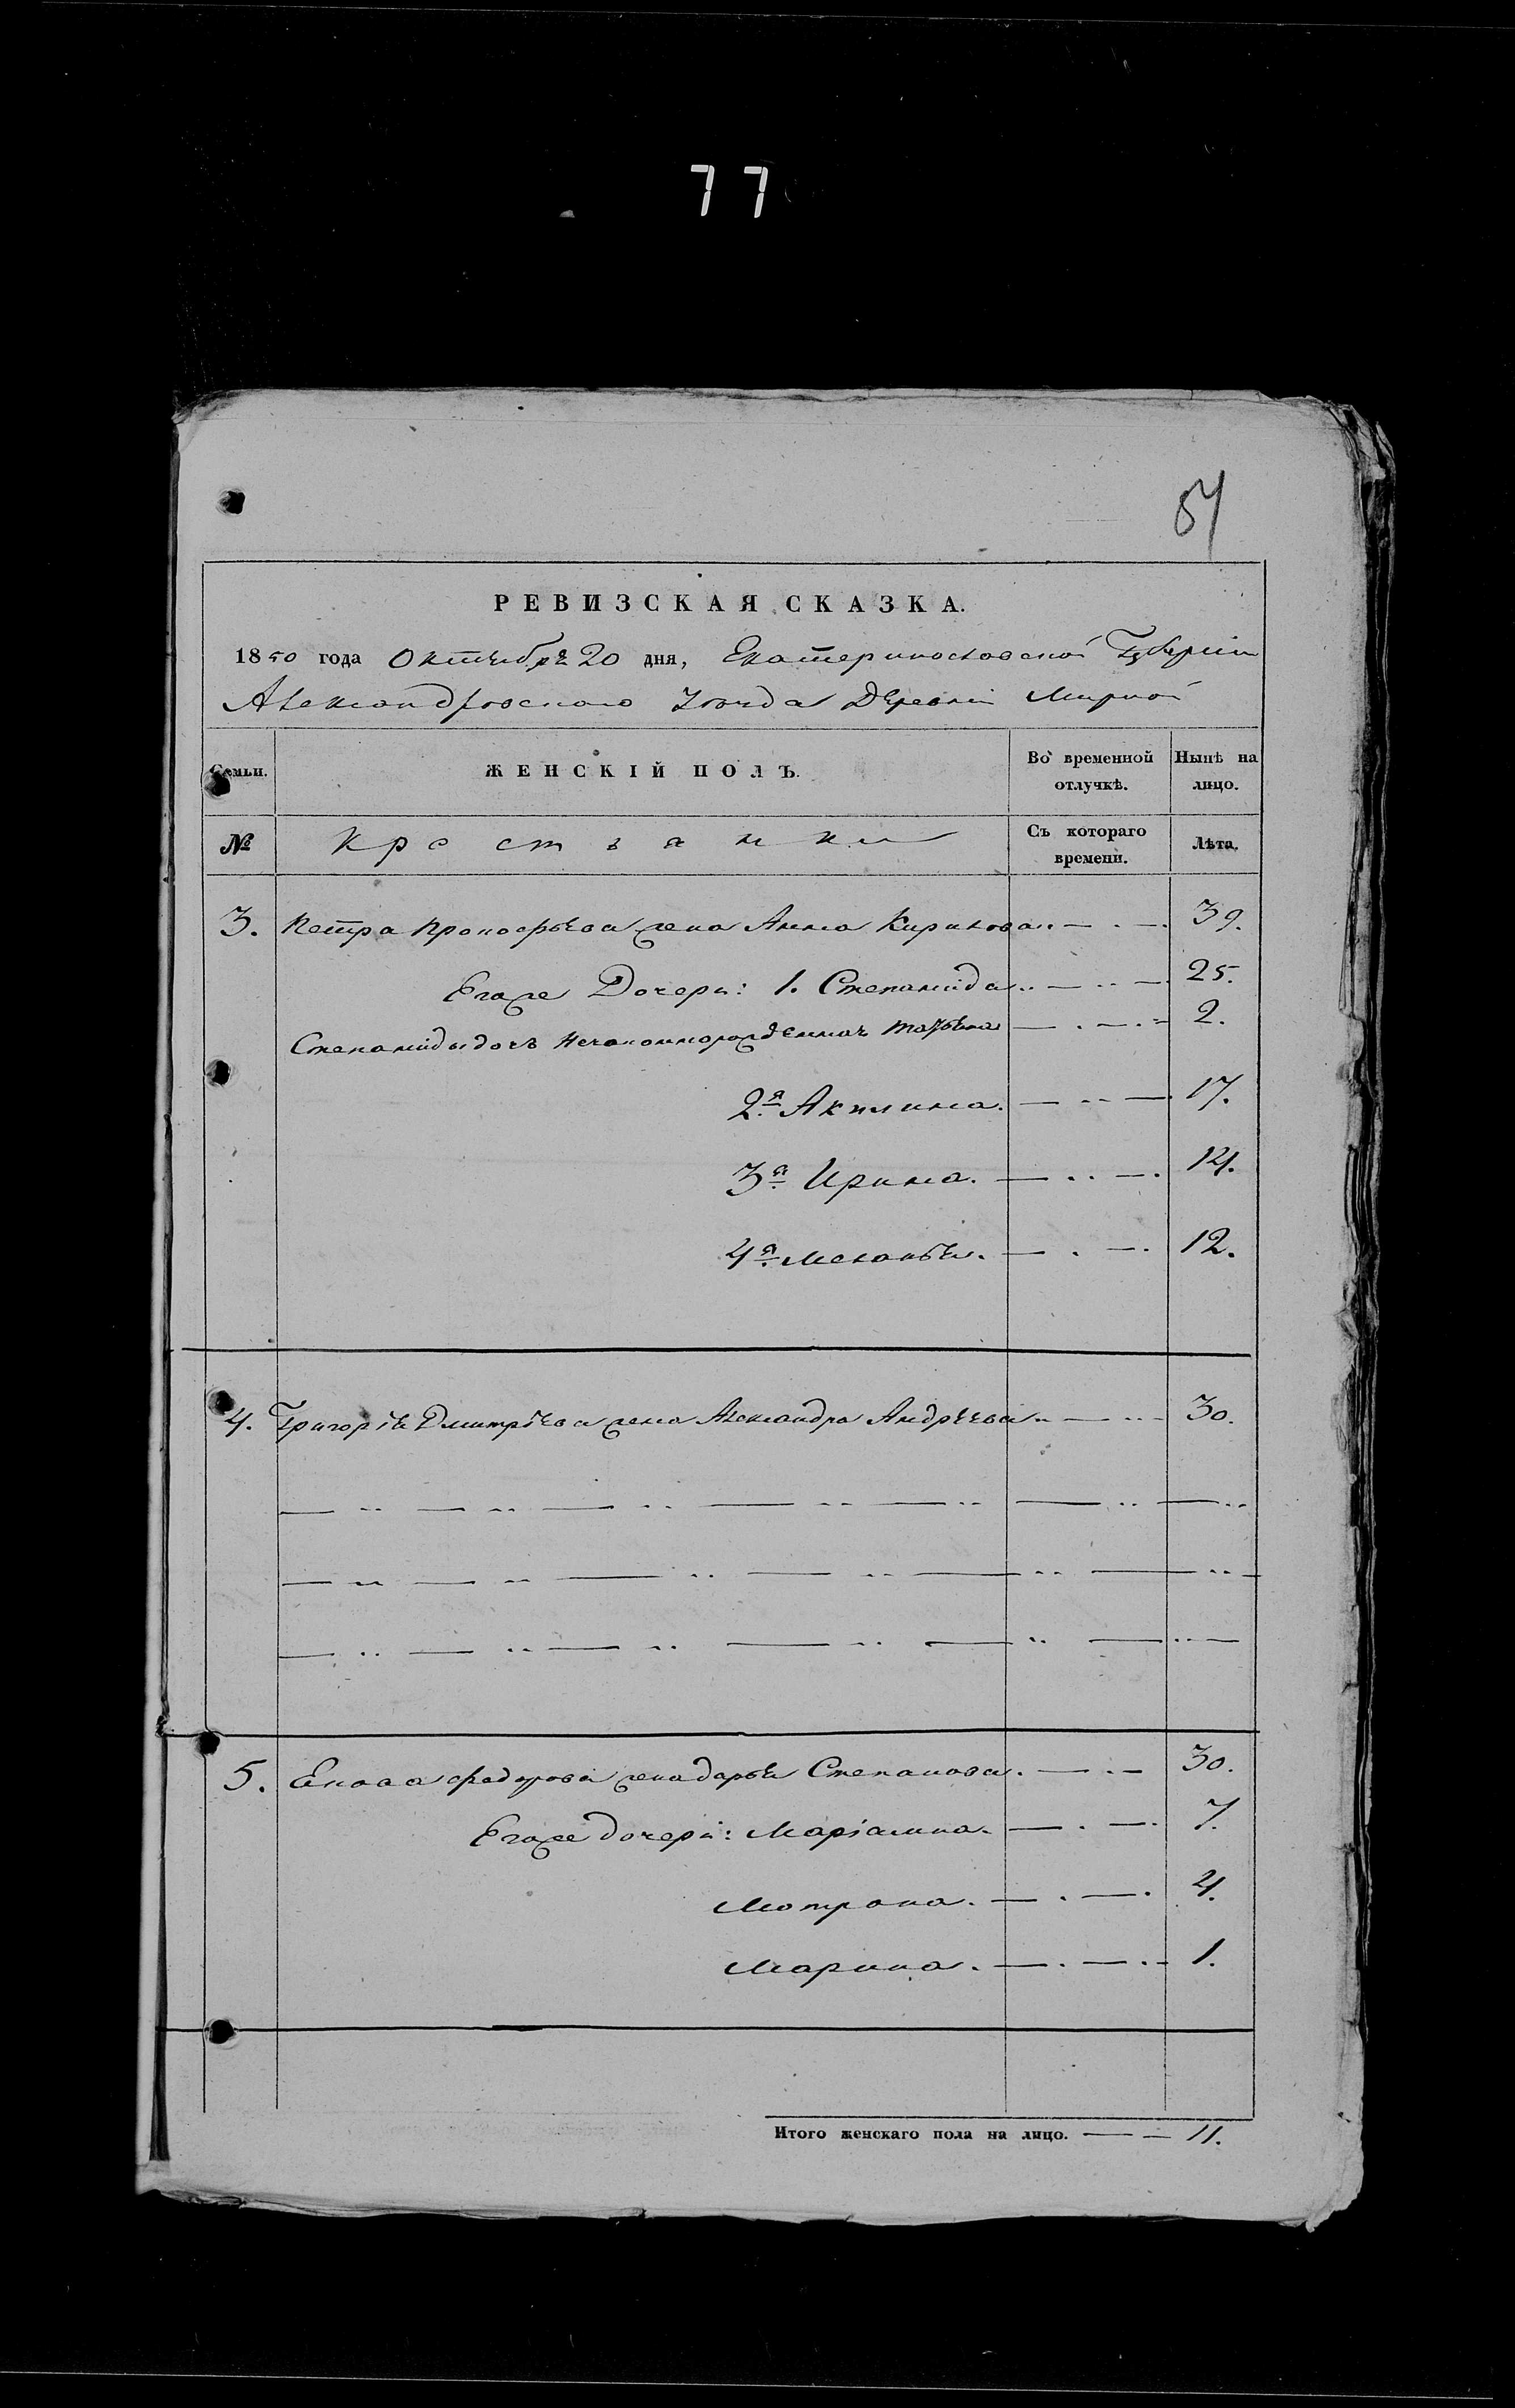 77
54
РЕВИЗСКАЯ СКАЗКА.
1850 года Октября 20 дня, Екатеринославской Губернии
Александровского Уезда Деревни Мирной
Семьи. ЖЕНСКІЙ ПОЛЪ. Во временной отлучкѣ. Нынѣ на лицо.
№ Крестьянки Съ котораго времени. Лѣта.
3. Петра Прокофьева жена Анна Кирилова 39.
Егоже Дочери: 1. Степанида 25.
Степаниды дочь незаконнорожденная Татьяна 2.
2я Акилина. 17.
3я Ирина. 14.
4я Меланья. 12.
4. Григорія Дмитріева жена Александра Андреева 30.
5. Федорова жена Дарья Степанова. 30.
Егоже дочери: Маріанна. 7.
Мотрона. 4.
Марина. 1.
Итого женскаго пола на лицо. 11.